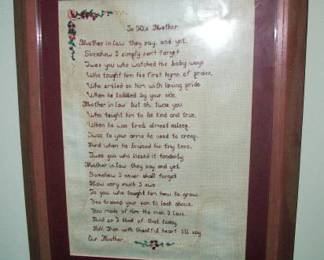 To His Mother
Mother in law they say, and yet,
Somehow I simply can't forget
Twas you who watched his baby ways
Who taught him his first hymn of praise,
Who smiled on him with loving pride
When he toddled by your side,
Mother in law but oh, twas you
Who taught him to be kind and true,
When he was tired, almost asleep,
Twas to your arms he used to creep;
And when he bruised his tiny knee,
Twas you who kissed it tenderly
Mother in law they say, and yet
Somehow I never shall forget
How very much I owe
To you who taught him how to grow.
You trained your son to look above,
You made of him the man I love
And so I think of that today
And then with thankful heart I'll say
Our Mother.